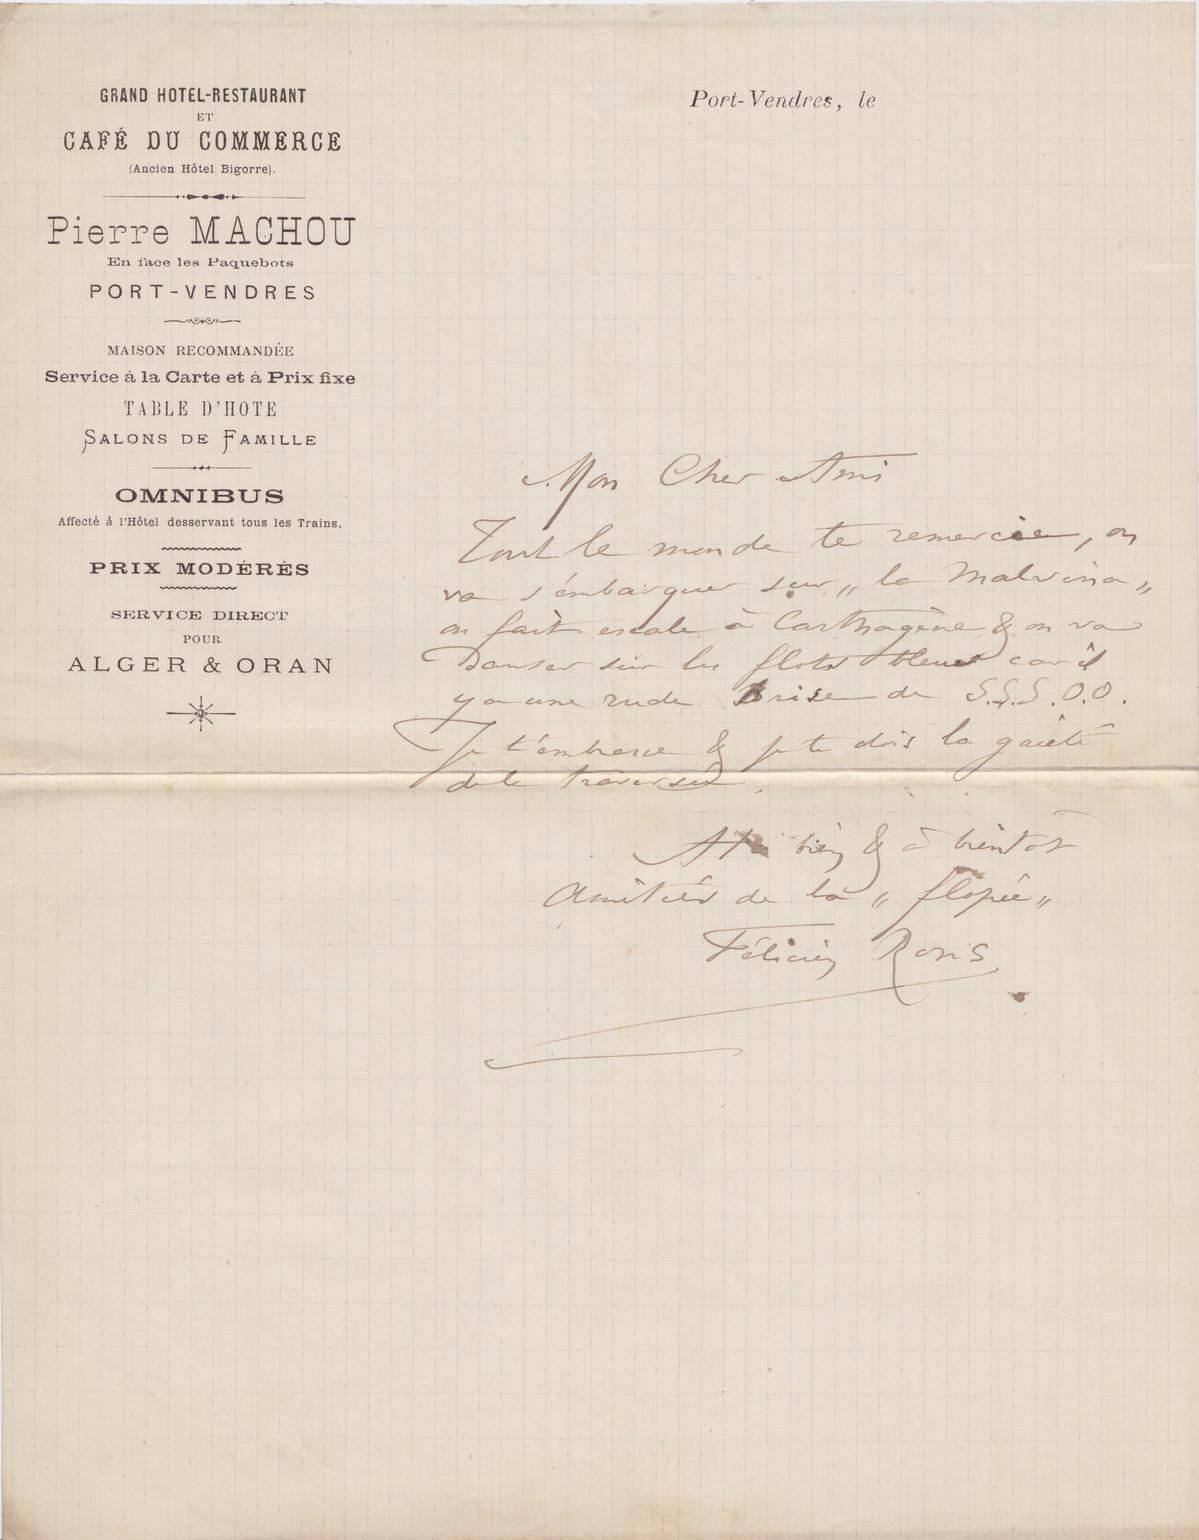 GRAND HOTEL-RESTAURANT
ET
CAFÉ DU COMMERCE
(Ancien Hôtel Bigorre).
Pierre MACHOU
En face les Paquebots
PORT-VENDRES
MAISON RECOMMANDÉE
Service à la Carte et à Prix fixe
TABLE D'HOTE
SALONS DE FAMILLE
OMNIBUS
Affecté à l'Hôtel desservant tous les Trains.
PRIX MODÉRÉS
SERVICE DIRECT
POUR
ALGER & ORAN
Port-Vendres, le
Mon Cher Ami
Tout le monde te remercie, on
va s'embarquer sur „ la Malvina „
on fait escale à Carthagène & on va
danser sur les flots bleus car il
y a une rude brise de S.S.S.O.O.
Je t'embrasse & je te dois la gaieté
de la traversée.
bien & à bientôt
Amitiés de la „ flopée „
Félicien Rops